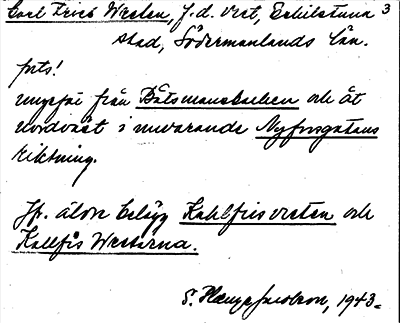 Carl Fries Westen, f.d. vret, Eskilstuna 3
stad, Södermanlands län.
forts!
ungefär från Båtsmansbacken och åt
nordväst i nuvarande Nyforsgatans
riktning.
Jfr. äldre belägg Kahlfris vreten och
Kallfris Wretarna.
S. Hænge Jacobson, 1943.